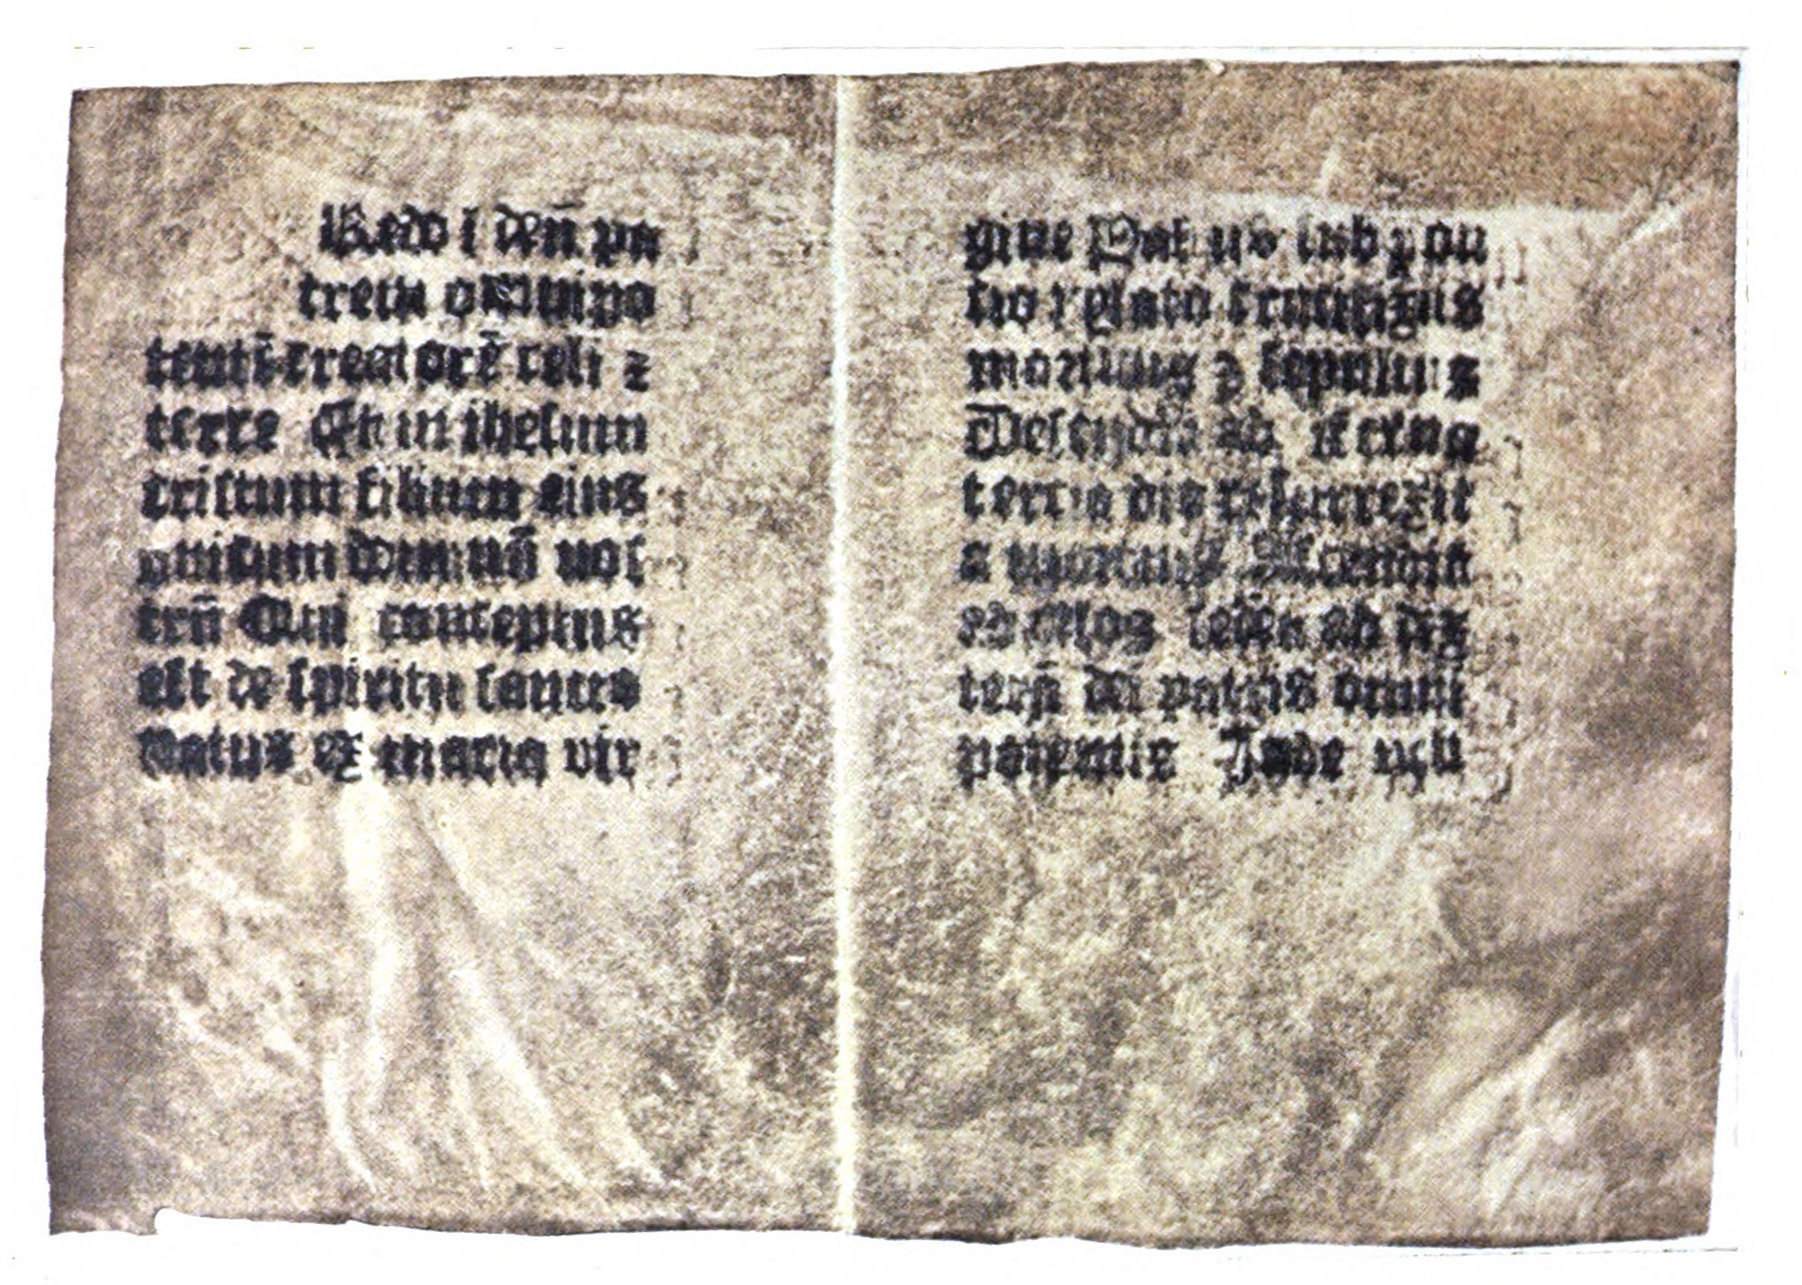 Redo ī deū pa
trem omnipo
tentē creatorē celi ⁊
terre Et in ihesum
cristum filium eius
unicum dominū nos
trū Qui conceptus
est de spiritu santus
Natus ex maria vir
gine Pas sub pon
sio pylato crucifixus
mortuus ⁊ sepultus
Descendit ad
tercia die resurrexit
a mortuis Ascendit
ad celos sedet ad dex
terā dei patris omni
potentis Inde